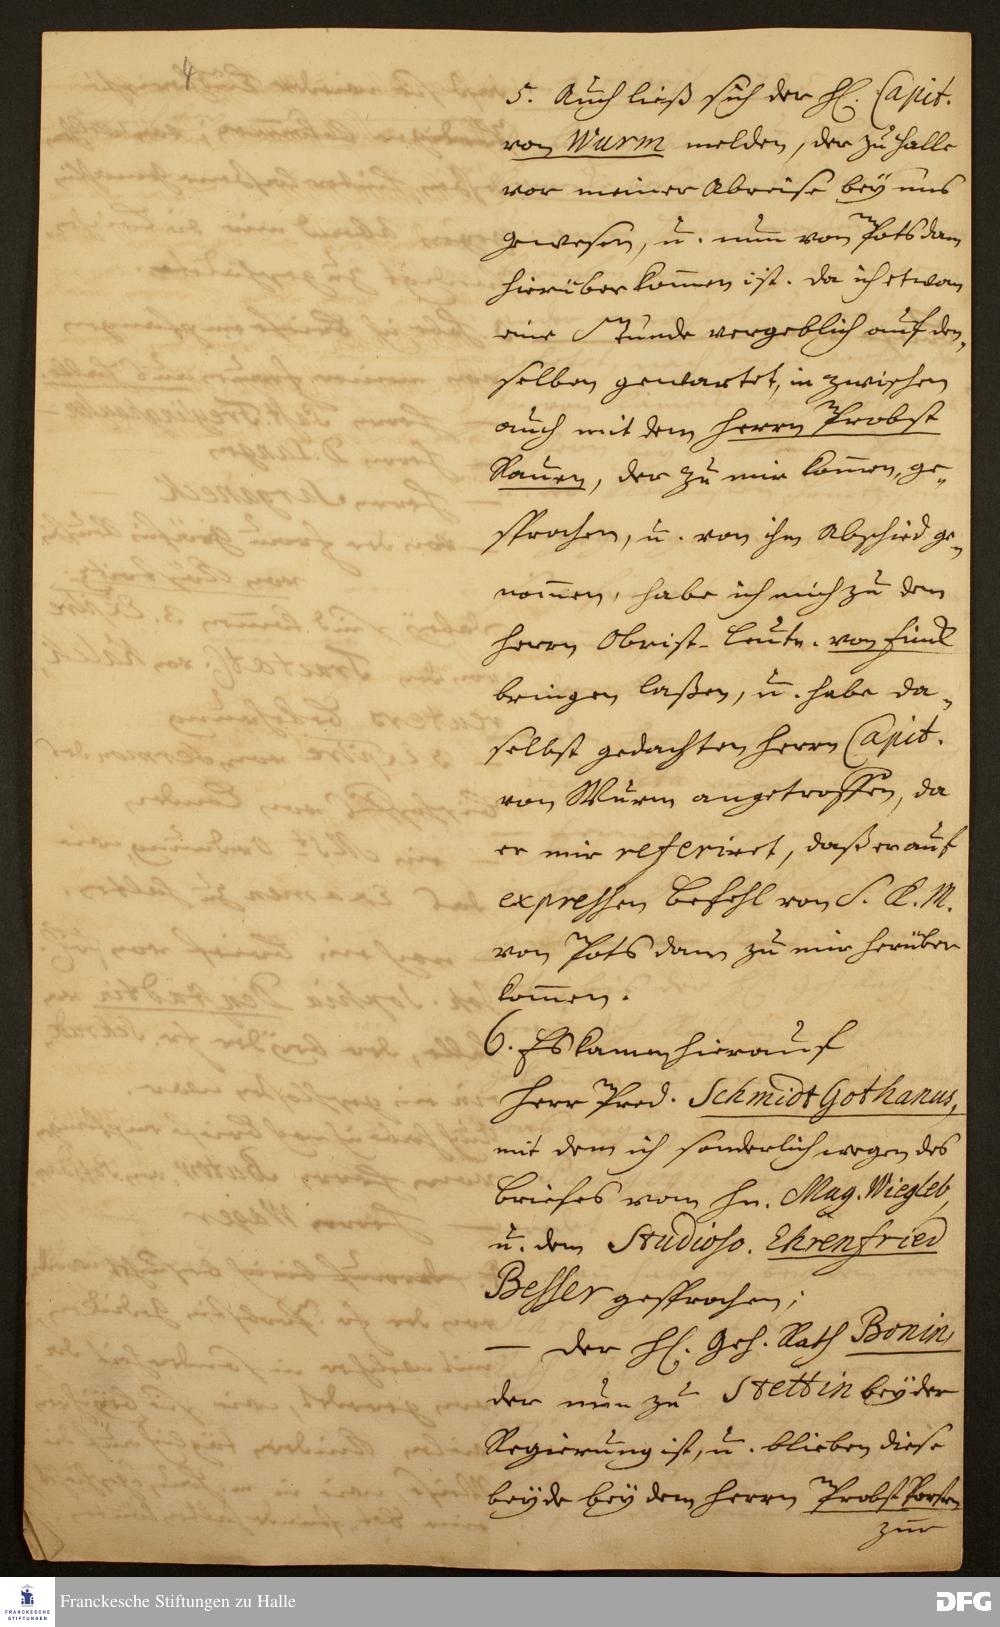 4
5. Auch ließ sich der H. Capit.
von Wurm melden, der zu Halle
vor meiner Abreise bey uns
gewesen, u. nun von Potsdam
hierüber kom̄en ist. da ich etwan
eine Stunde vergeblich auf den„
selben gewartet, inzwischen
auch mit dem Herrn Probst
Rauen, der zu mir kom̄en, ge„
sprochen, u. von ihm Abschied ge„
nom̄en, habe ich mich zu dem
Herrn Obrist-Leutn. von Finck
bringen laßen, u. habe da„
selbst gedachten Herrn Capit.
von Wurm angetroffen, da
er mir referiret, daß er auf
expressen Befehl von S. K. M.
von Potsdam zu mir herüber
kom̄en.
6. Es kamen hierauf
Herr Pred. Schmidt Gothanus,
mit dem ich sonderlich wegen des
Briefes vom Hn. Mag. Wiegleb,
u. dem Studioso. Ehrenfried
Besser gesprochen;
— der H. Geh. Rath Bonin,
der nun zu Stettin bey der
Regierung ist, u. blieben diese
beyde bey dem Herrn Probst Porsten
zur
Franckesche Stiftungen zu Halle
FRANCKESCHE
STIFTUNGEN
DFG